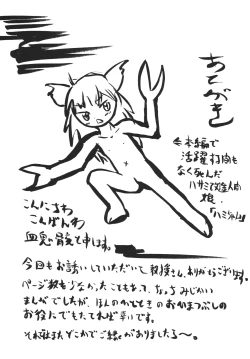 あとがき
本編で
活躍打内も
なく死んだ
ハサミ改造人間
娘
「ハミジャム」
こんにちわ
こんばんわ
と申します。
今回もお誘いしていただいて教授さん、ありがとうございます。
ページ数も少なかったこともあって、なっちみじかい
まんがでしたが、ほんのかたときのおひまつぶしの
お役にでもたてれば幸いです。
それではまたどこかでご縁がありましたら〜。